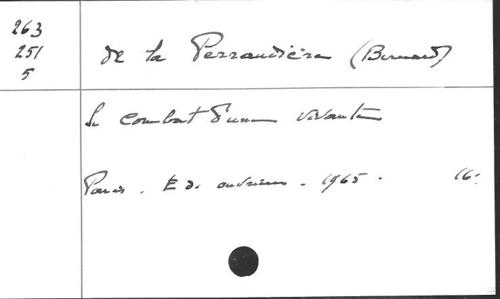 263
251
5
de la Perraudière (Bernard)
Le combat d'une vivante
Paris. Ed. ouvrières. 1965. 16: